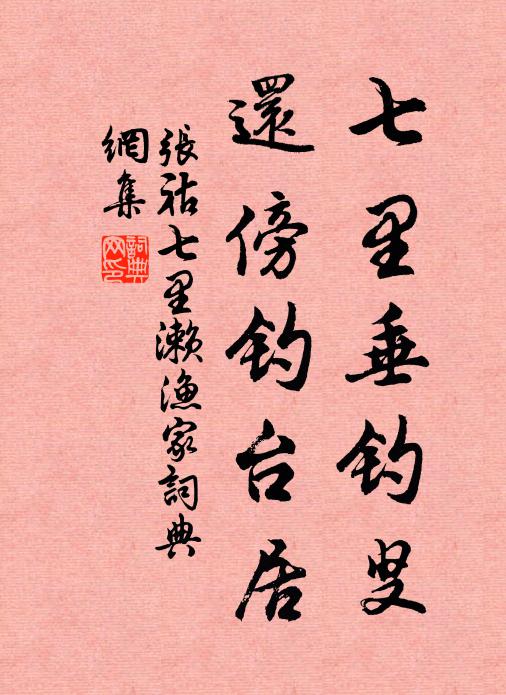 七里垂钓叟
還傍钓台居
張祜七里瀨漁家詞典
網集
詞典
网印